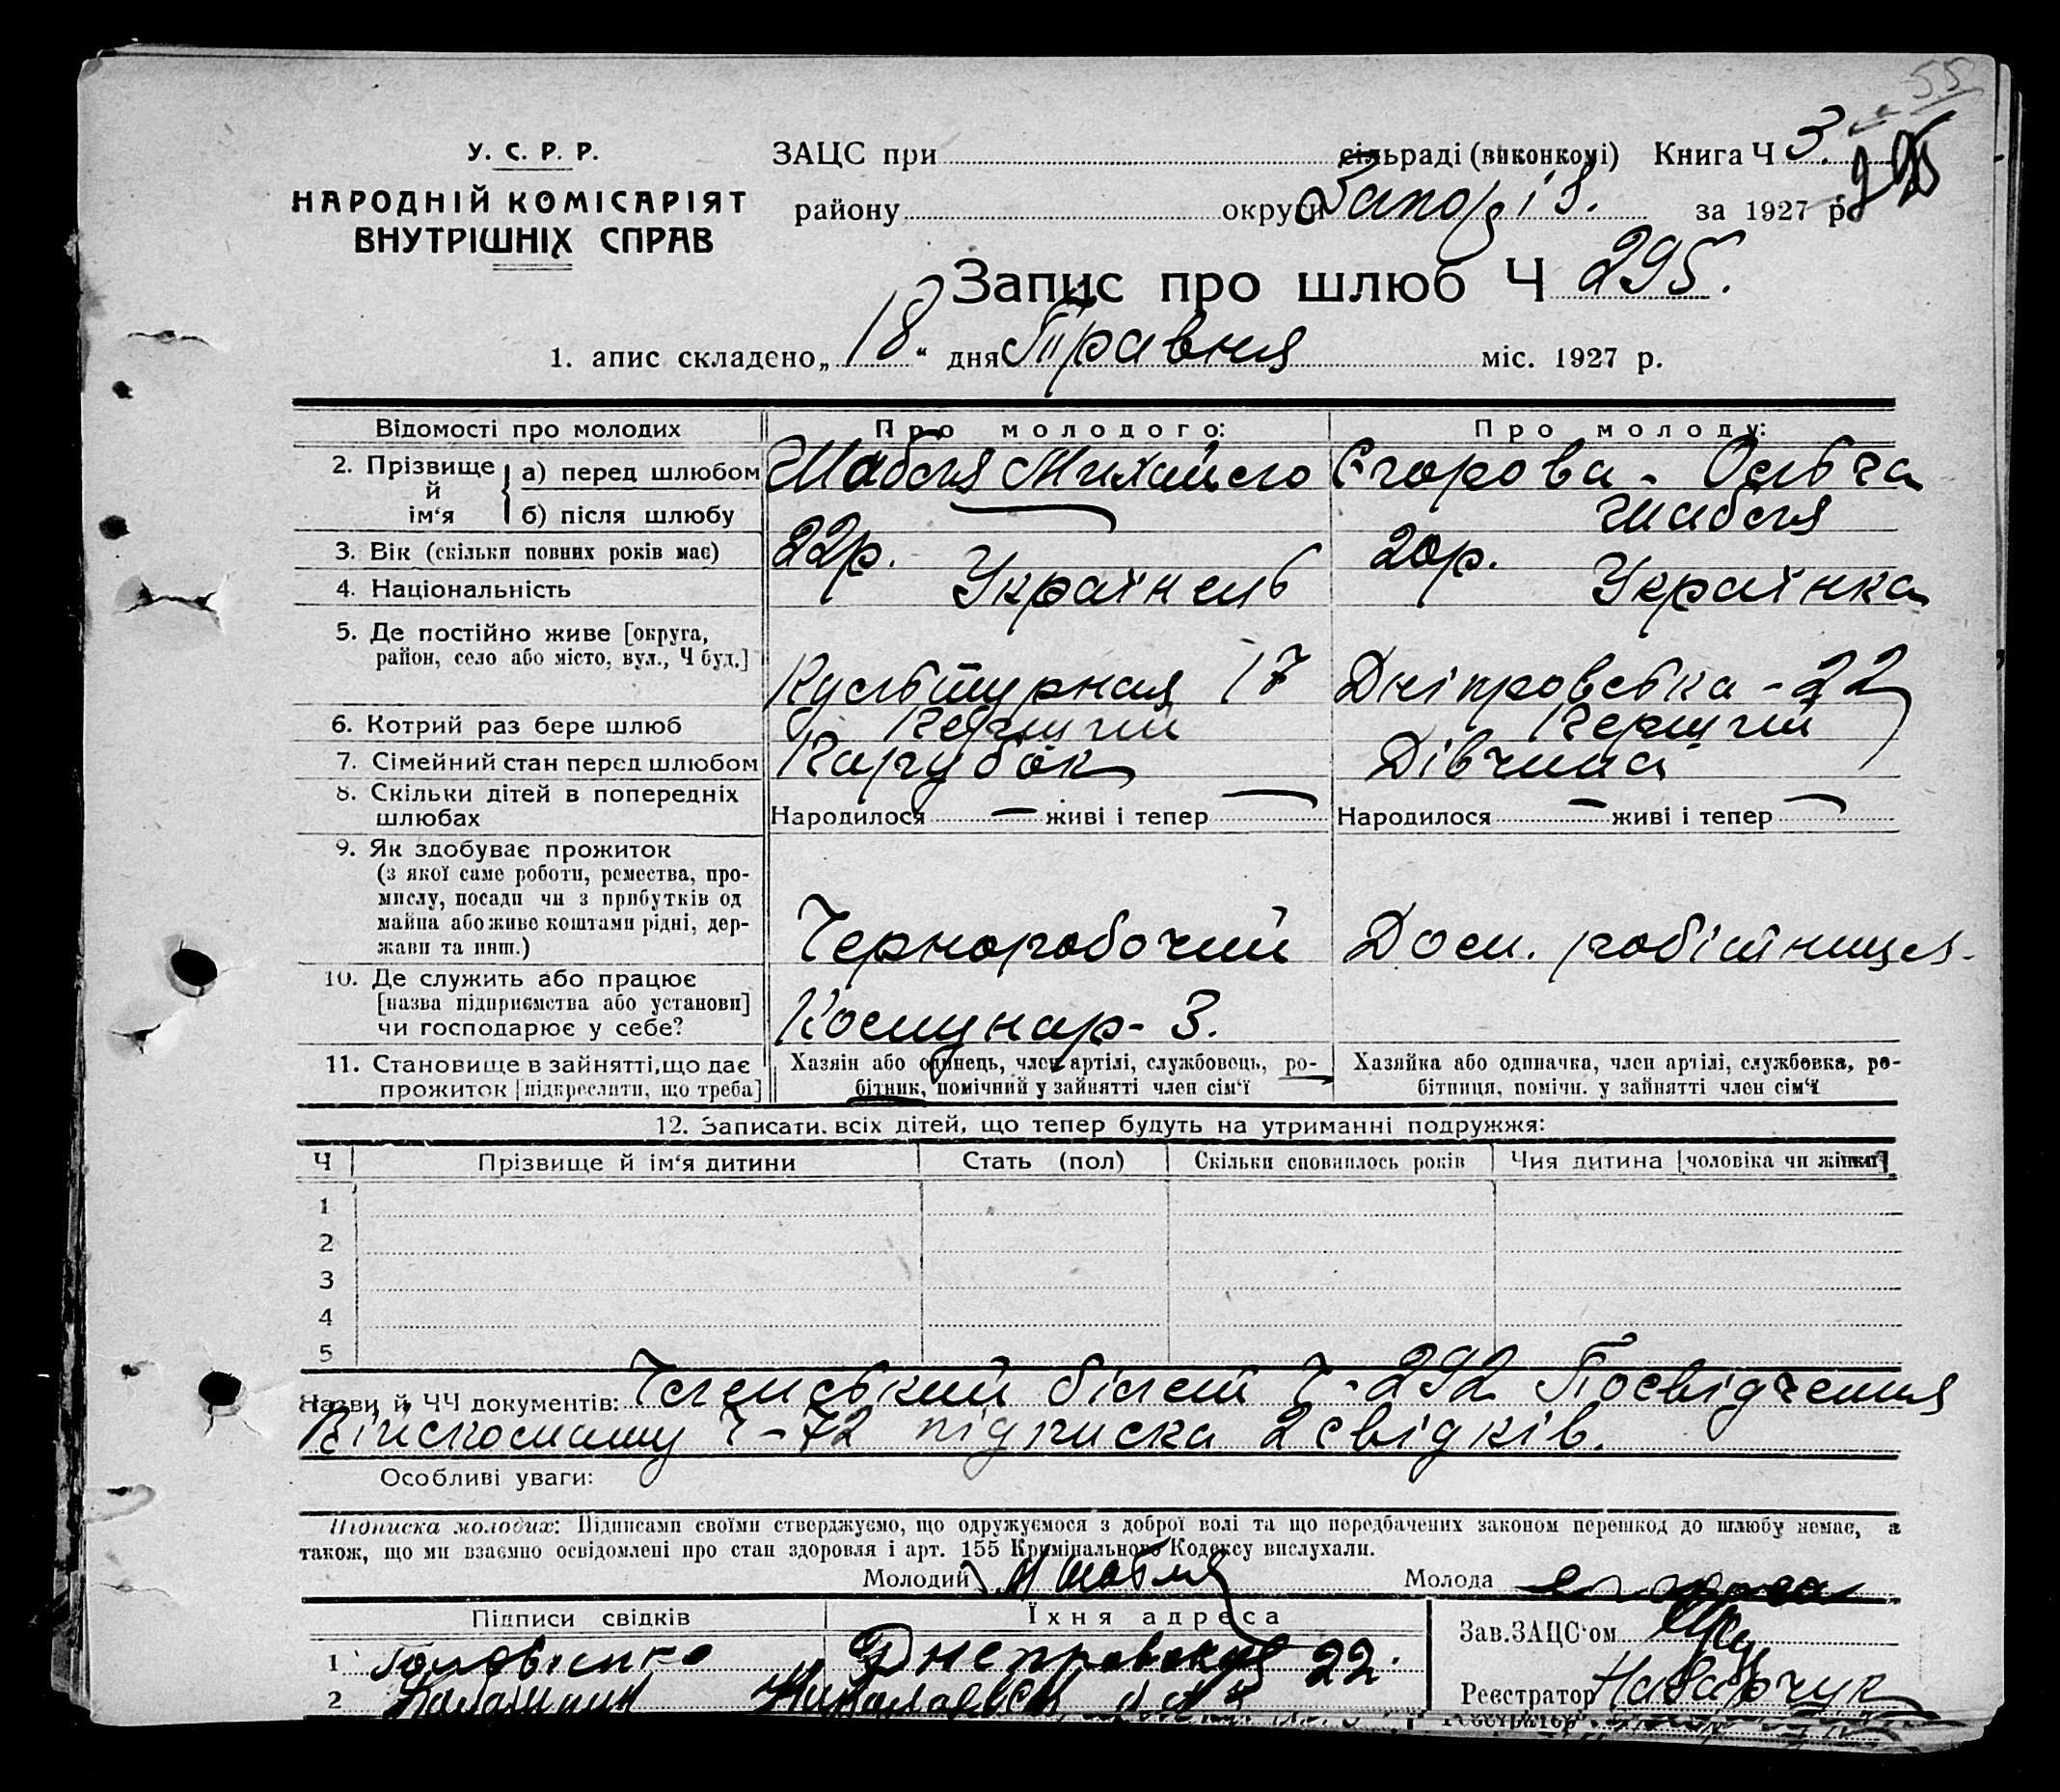 55
У. С. Р. Р.
НАРОДНІЙ КОМІСАРІЯТ
ВНУТРІШНІХ СПРАВ
ЗАЦС при сільраді (виконкомі) Книга Ч 3.
295
району округи Запоріз. за 1927 р.
Запис про шлюб Ч 295.
1. апис складено „18“ дня Травня міс. 1927 р.
Відомості про молодих Про молодого: Про молоду:
2. Прізвище й ім‘я а) перед шлюбом Шабля Михайло Єгорова - Ольга
б) після шлюбу Шабля
3. Вік (скільки повних років має) 22р. 20р.
4. Національність Українець Українка
5. Де постійно живе [округа,
район, село або місто, вул., Ч буд.] Культурная 17 Дніпровська - 22
6. Котрий раз бере шлюб Перший Перший
7. Сімейний стан перед шлюбом Парубок Дівчина
8. Скільки дітей в попередніх
шлюбах Народилося — живі і тепер — Народилося — живі і тепер —
9. Як здобуває прожиток
(з якої саме роботи, ремества, про-
мислу, посади чи з прибутків од
майна або живе коштами рідні, дер-
жави та инш.) Чернорабочий Дом. робітниця.
10. Де служить або працює
[назва підприємства або установи]
чи господарює у себе? Комунар - 3.
11. Становище в зайнятті, що дає
прожиток [підкреслити, що треба]
Хазяїн або одинець, член артілі, службовець, ро-
бітник, помічний у зайнятті член сім‘ї
Хазяйка або одиначка, член артілі, службовка, ро-
бітниця, помічн. у зайнятті член сім‘ї
12. Записати всіх дітей, що тепер будуть на утриманні подружжя:
Ч Прізвище й ім‘я дитини Стать (пол) Скільки сповнилось років Чия дитина [чоловіка чи жінки]
1
2
3
4
5
Назви й ЧЧ документів: Членський білет Ч-292 Посвідчення
Війскомату Ч-72 підписка 2 свідків.
Особливі уваги:
Підписка молодих: Підписами своїми стверджуємо, що одружуємося з доброї волі та що передбачених законом перешкод до шлюбу немає, а
також, що ми взаємно освідомлені про стан здоровля і арт. 155 Кримінального Кодексу вислухали.
Молодий М Шабля Молода Егорова
Підписи свідків Їхня адреса
Зав. ЗАЦС‘ом
1 Днепровская 22.
2
Реєстратор